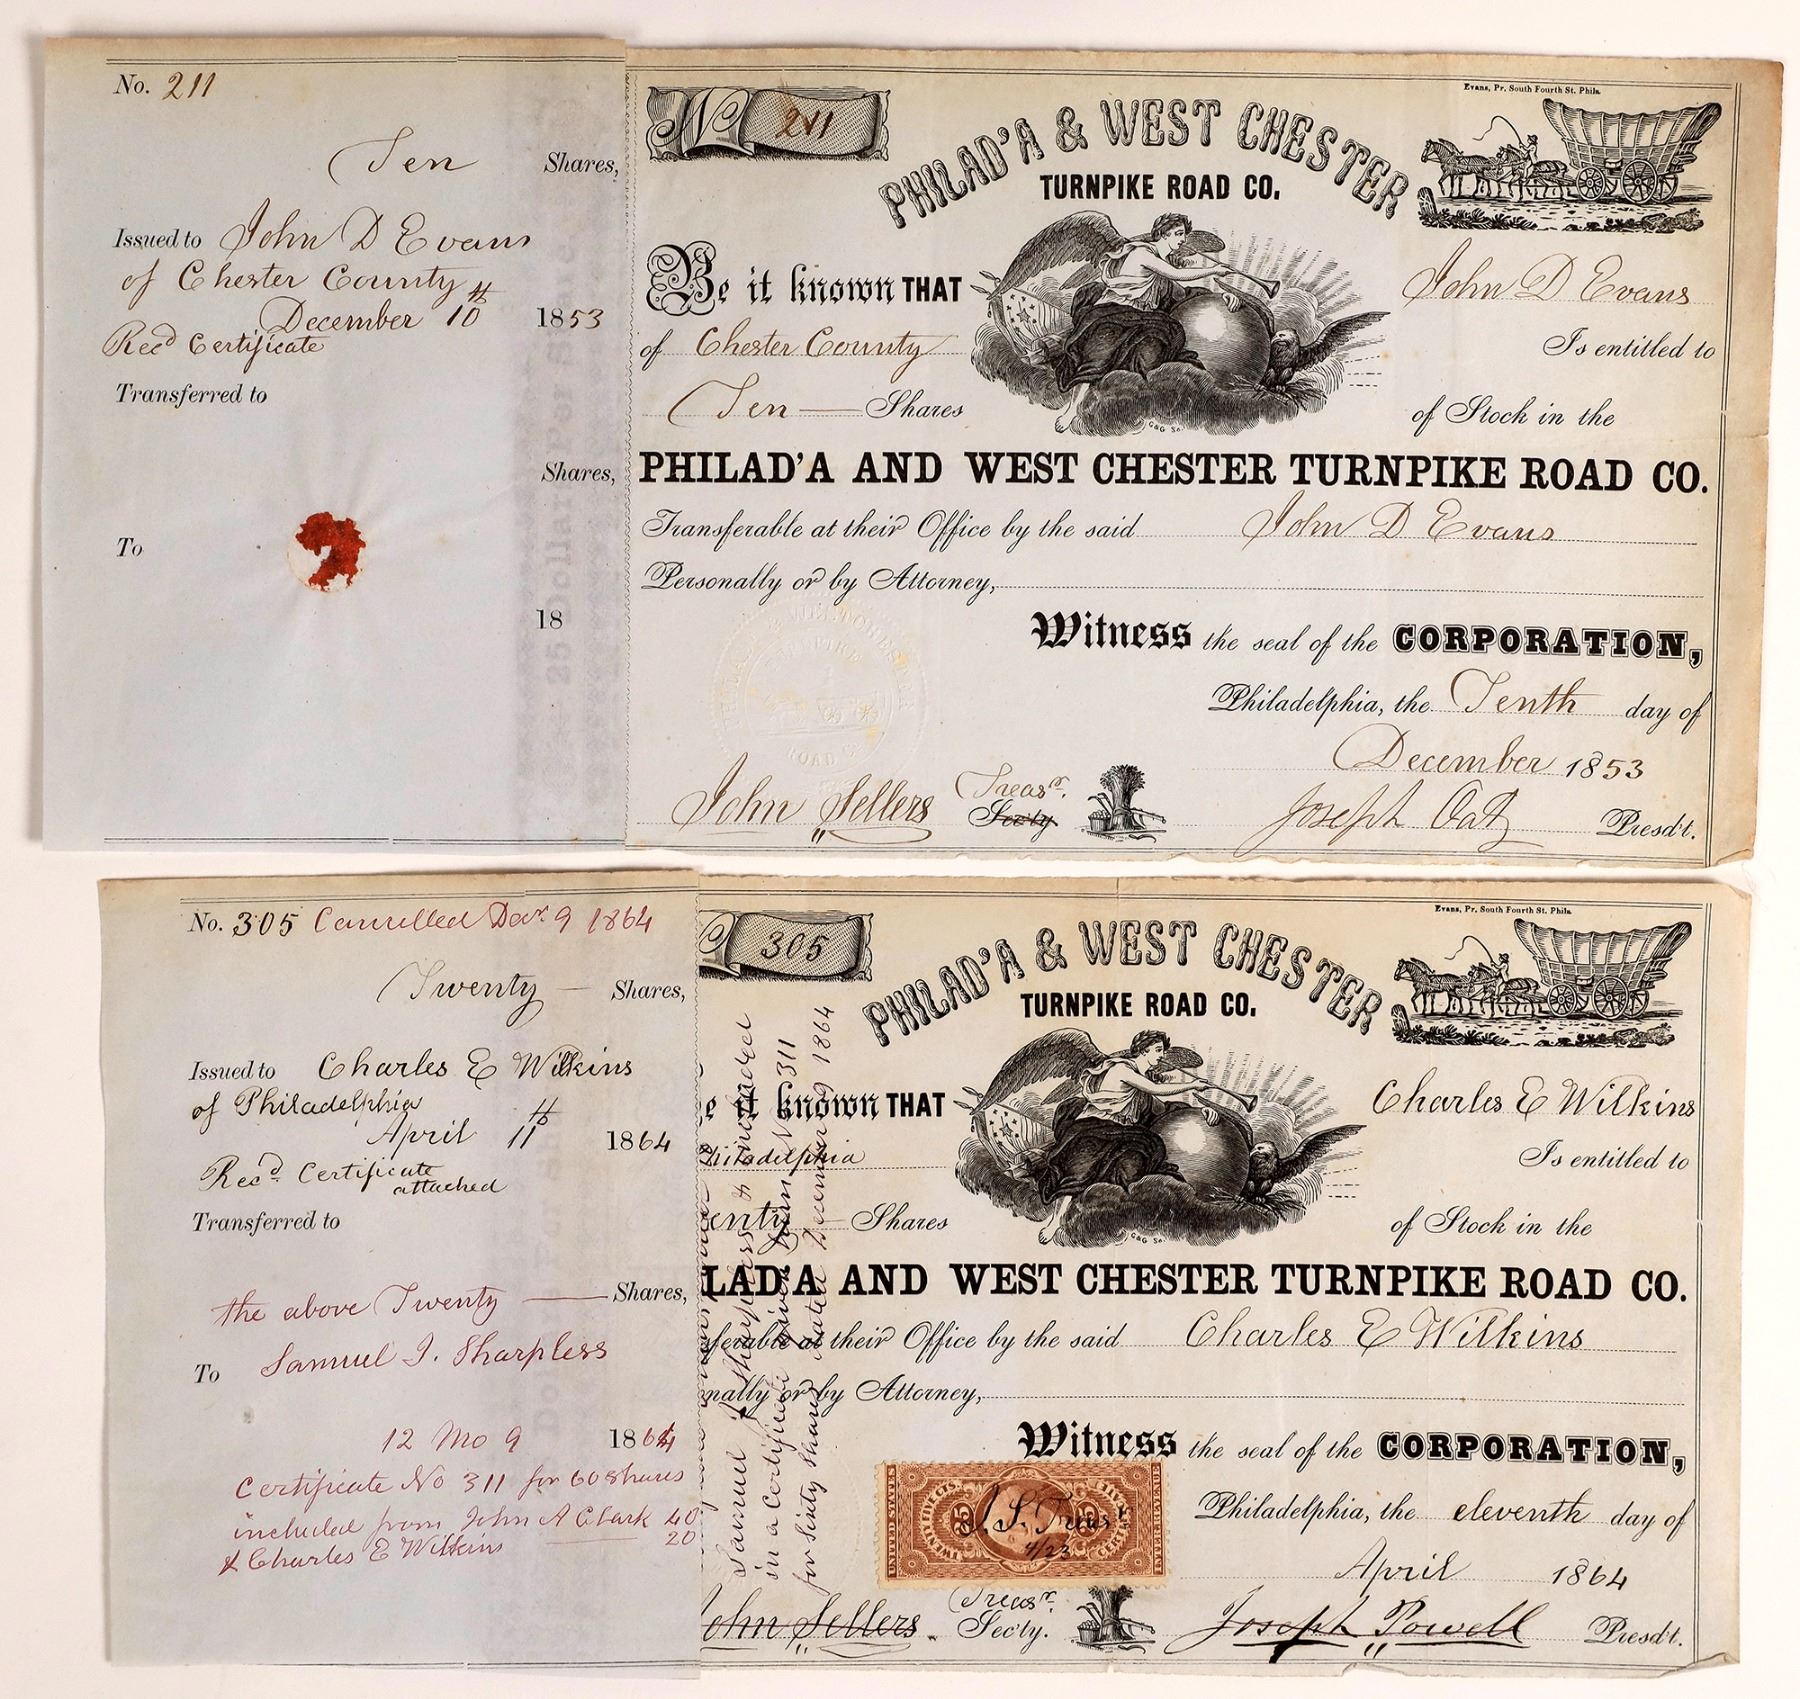 No. 211
Ten Shares,
Issued to John D Evans
of Chester County
December 10th 1853
Recd Certificate
Transferred to
Shares,
To
18
25 Dollar Per
No 211
PHILAD'A & WEST CHESTER
TURNPIKE ROAD CO.
Evans, Pr. South Fourth St. Phila.
Be it known THAT John D Evans
of Chester County Is entitled to
Ten Shares of Stock in the
PHILAD'A AND WEST CHESTER TURNPIKE ROAD CO.
Transferable at their Office by the said John D Evans
Personally or by Attorney,
Witness the seal of the CORPORATION,
Philadelphia, the Tenth day of
December 1853
ROAD
John Sellers Treasr. Sec'ty. Joseph Presd't.
No. 305 Cancelled Dec. 9 1864
Twenty Shares,
Issued to Charles E Wilkins
of Philadelphia
April 11th 1864
Recd. Certificate
attached
Transferred to
the above Twenty Shares,
To Samuel J. Sharpless
12 Mo 9 1864
Certificate No 311 for 60 Shares
included from John A Clark 40
& Charles E Wilkins 20
305
PHILAD'A & WEST CHESTER
TURNPIKE ROAD CO.
Evans, Pr. South Fourth St. Phila.
e it known THAT Charles E Wilkins
Philadelphia Is entitled to
enty Shares of Stock in the
LAD'A AND WEST CHESTER TURNPIKE ROAD CO.
sferable at their Office by the said Charles E Wilkins
nally or by Attorney,
Witness the seal of the CORPORATION,
Philadelphia, the eleventh day of
April 1864
John Sellers Treasr. Sec'ty. Joseph Powell Presd't.
Samuel J Sharpless & included
in a Certificate Given him No 311
for Sixty Shares dated December 9 1864
UNITED STATES
INTER. REVENUE
25 CENTS. 25
CERTIFICATE
J. S. Treasr
4/23